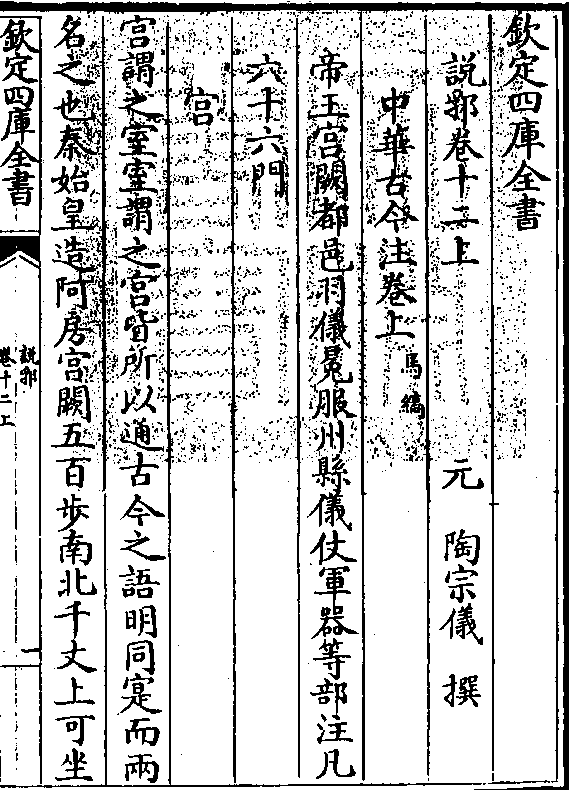 欽定四庫全書
說郛卷十二上
元 陶宗儀 撰
中華古今注卷上 馬縞
帝王宮闕都邑羽儀冕服州縣儀仗軍器等部注凡
六十六門
宮
宮謂之室室謂之宮皆所以通古今之語明同寔而兩
名之也秦始皇造阿房宮闕五百歩南北千丈上可坐
欽定四庫全書
說郛
卷十二上
一